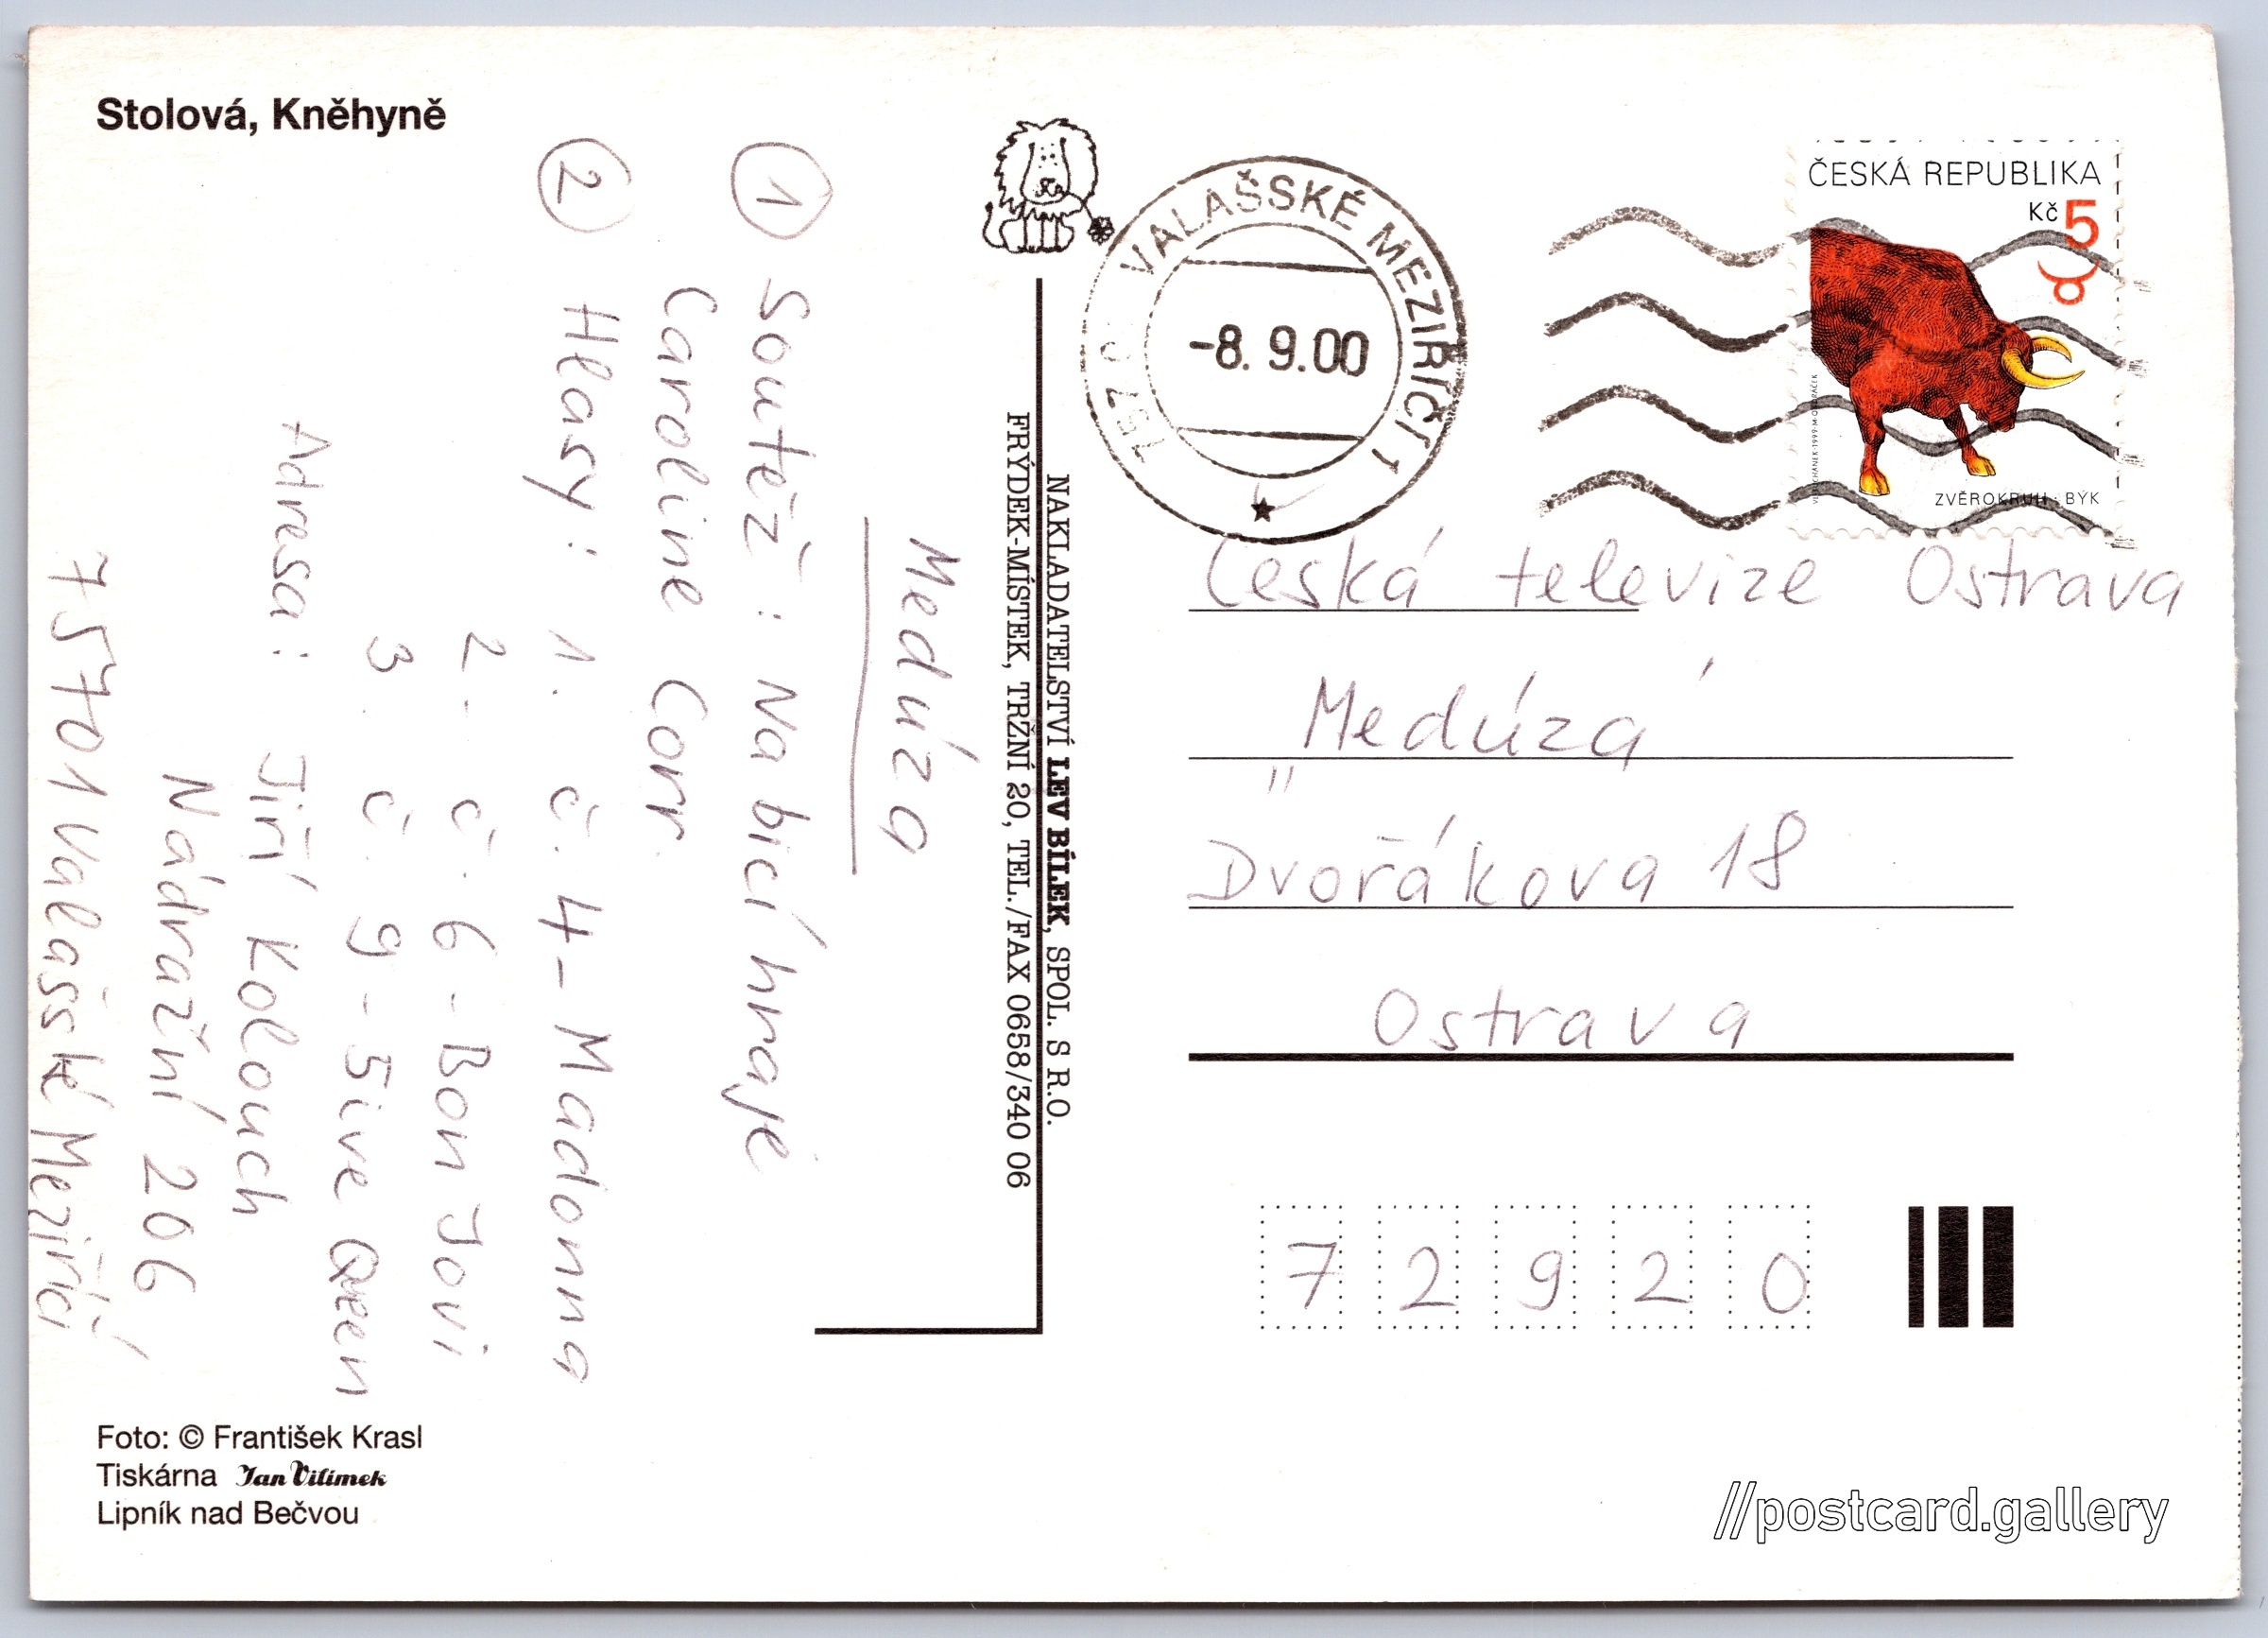 Stolová, Kněhyně
Medúza
① Soutěž: Na bicí hraje
Caroline Corr.
② Hlasy: 1. č. 4 - Madonna
2. č. 6 - Bon Jovi
3. č. 9 - 5ive Queen
Adresa: Jiří Kolouch
Nádražní 206
75701 Valašské Meziříčí
Foto: © František Krasl
Tiskárna Jan Vilímek
Lipník nad Bečvou
NAKLADATELSTVÍ LEV BÍLEK, SPOL. S R.O.
FRÝDEK-MÍSTEK, TRŽNÍ 20, TEL./FAX 0658/340 06
VALAŠSKÉ MEZIŘÍČÍ 1
757 0
-8. 9.00
ČESKÁ REPUBLIKA
Kč 5
ZVĚROKRUH - BÝK
Česká televize Ostrava
Medúza
"
Dvořákova 18
Ostrava
72920
//postcard.gallery